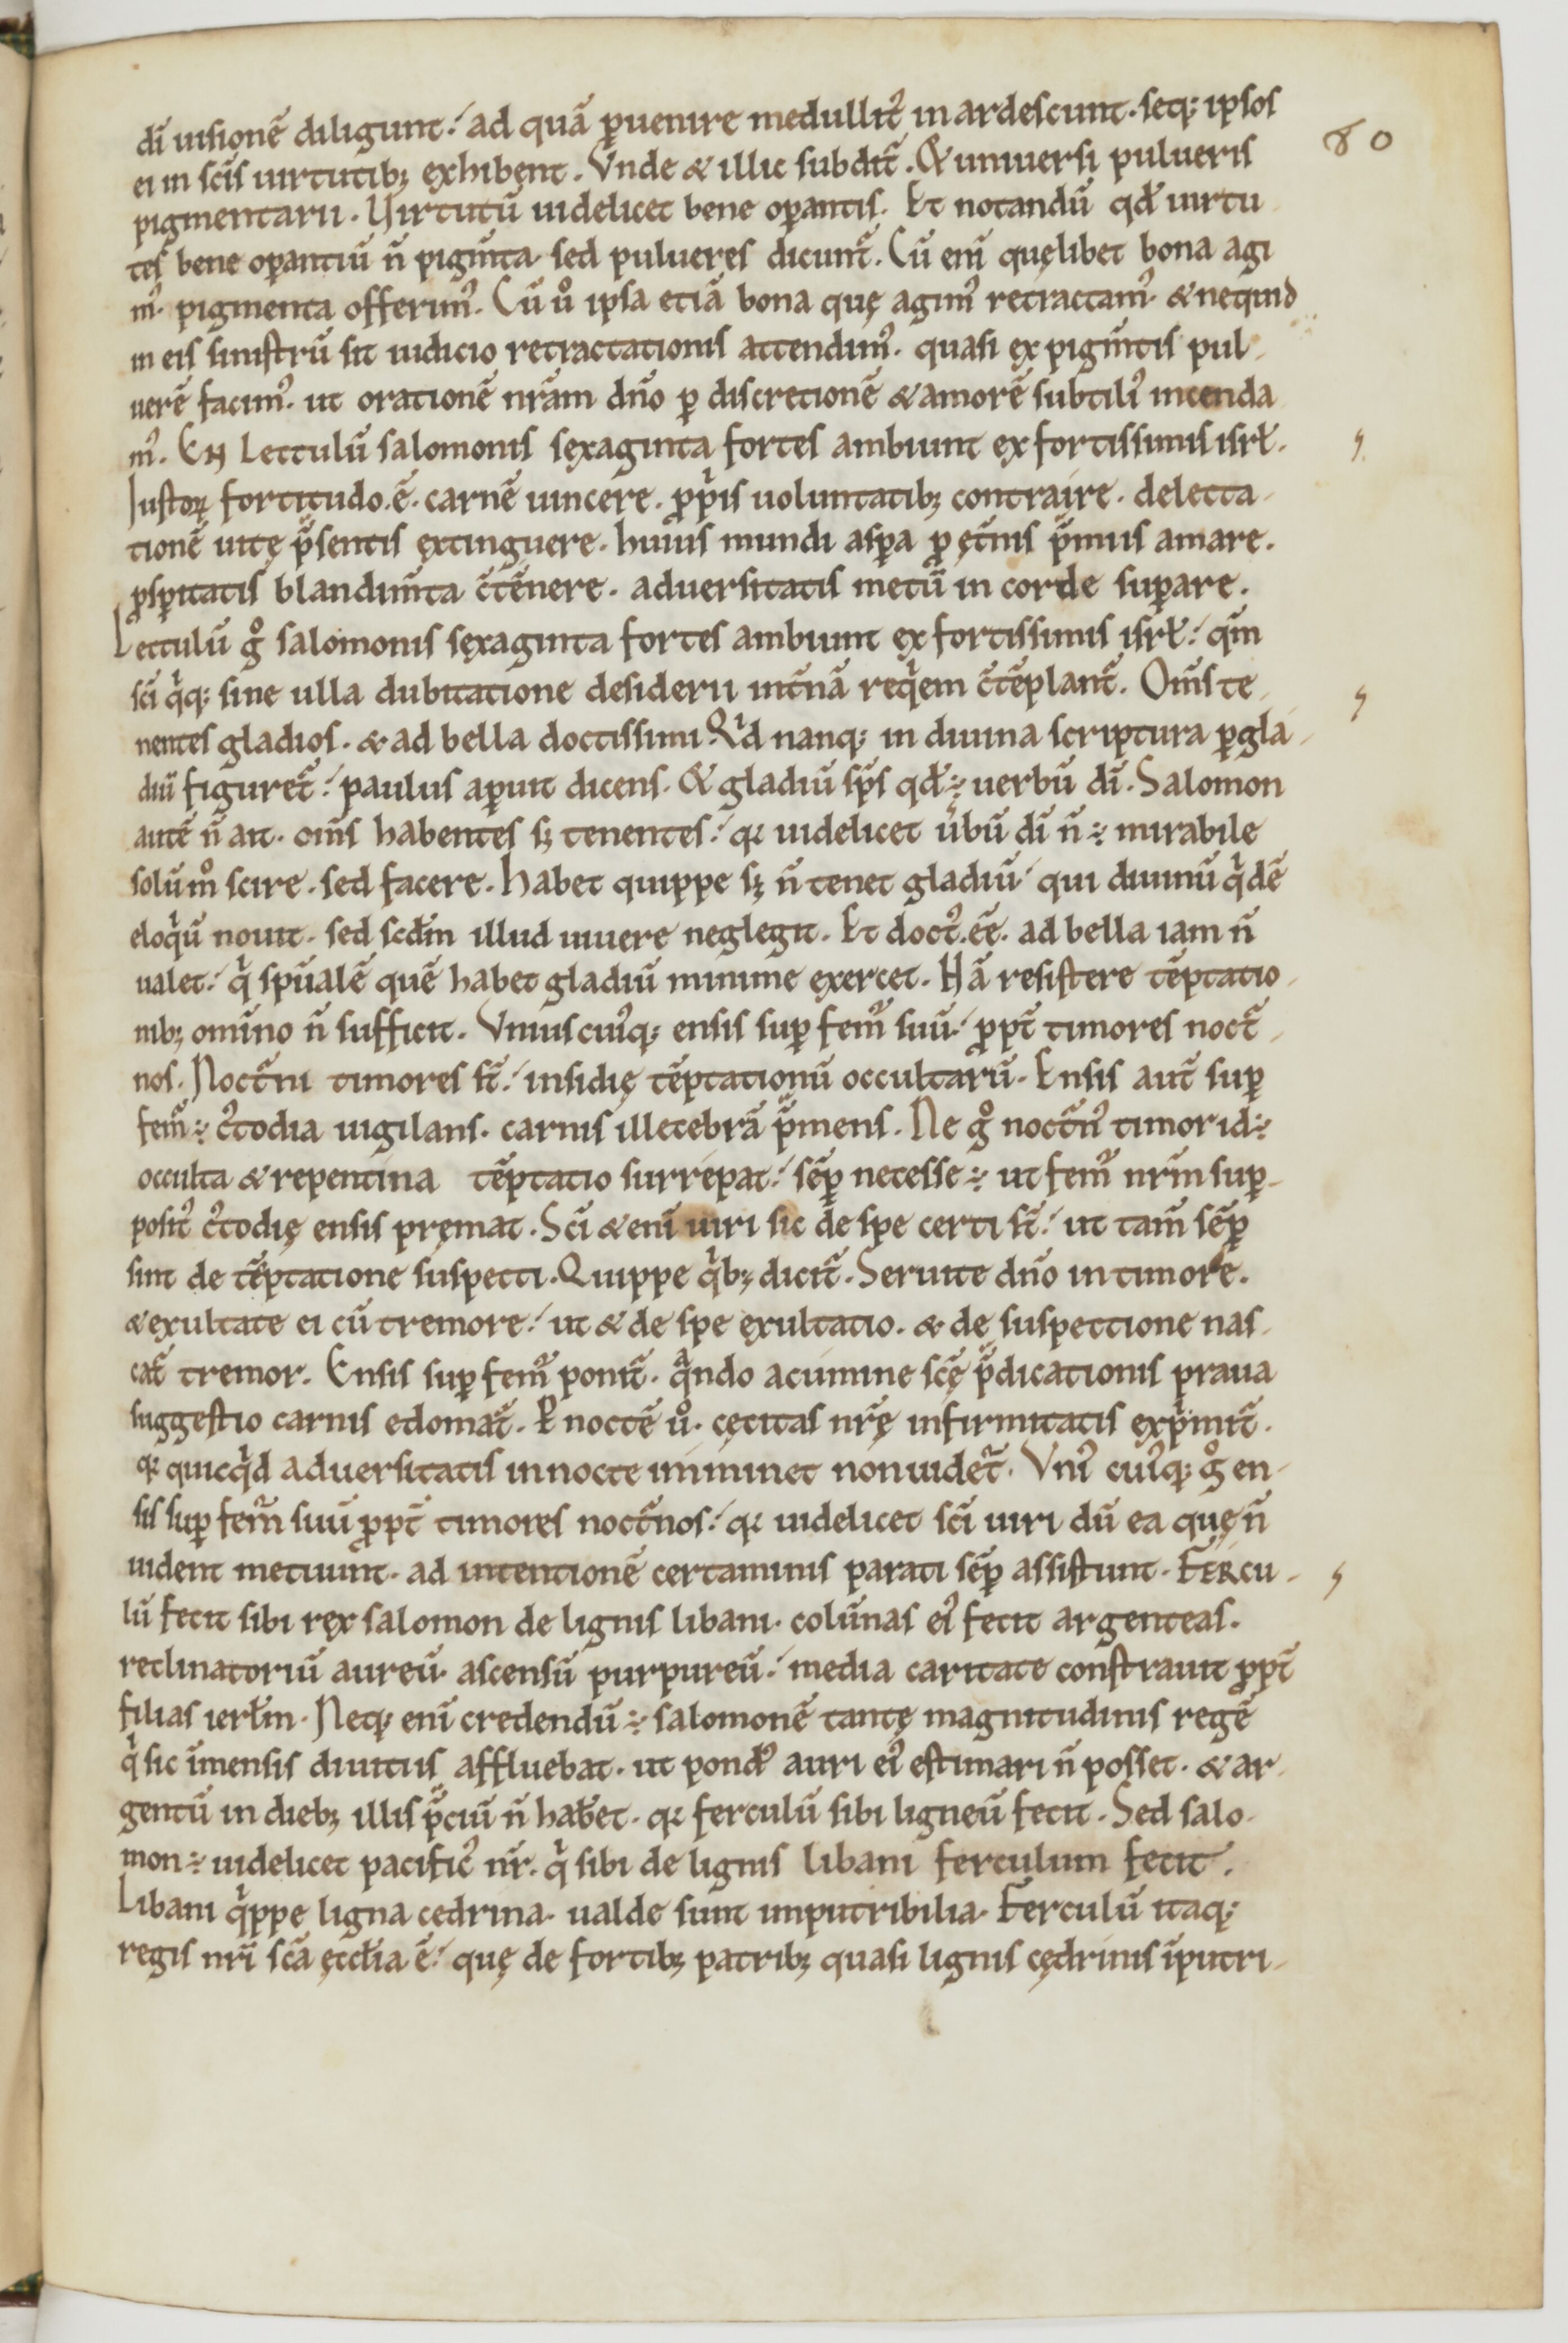 dī uisionē diligunt. ad quā ꝑuenire medullit᷒ in ardescunt. seq; ipsos
80
ei in scīs uirtutib; exhibent. Vnde & illic subdit̄. & uniuersi pulueris
pigmentarii. Virtutū uidelicet bene oꝑantis. Et notandū qd̄ uirtu
tes bene oꝑantiū n̄ pigm̄ta sed pulueres dicunt̄. Cū enī quęlibet bona agi
m᷒. pigmenta offerim᷒. Cū ů ipsa etiā bona quę agim᷒ retractam᷒. & nequid
in eis sinistrū sit iudicio retractationis attendim᷒. quasi ex pigm̄tis pul
uerē facim᷒. ut orationē nrām dn̄o ꝑ discretionē & amorē subtili᷒ incenda
m᷒. EN Lectulū salomonis sexaginta fortes ambiunt ex fortissimis isrł.
Iustoꝝ fortitudo.ē. carnē uincere. ꝓpiis uoluntatib; contraire. delecta
tionē uitę p̄sentis extinguere. huius mundi aspa ꝓ ęt̄nis p̄miis amare.
ꝓsꝑitatis blandim̄ta c̄tēnere. aduersitatis metū in corde suꝑare.
Lectulū g̊ salomonis sexaginta fortes ambiunt ex fortissimis isrł. qm̄
scī qͥq; sine ulla dubitatione desiderii int̄nā reqͥem c̄tēplant̄. Om̄s te
nentes gladios. & ad bella doctissimi. Qͥd nanq; in diuina scriptura ꝑ gla
diū figuret̄. paulus aꝑuit dicens. & gladiū sp̄s qd̄ ÷ uerbū dī. Salomon
autē n̄ ait. om̄s habentes s; tenentes. qꝛ uidelicet u̓bū dī n̄ ÷ mirabile
solum̊ scire. sed facere. Habet quippe s; n̄ tenet gladiū. qui diuinū qͥdē
eloqͥū nouit. sed scd̄m illud uiuere neglegit. Et doct᷒.eē. ad bella iam n̄
ualet. qͥ spūalē quē habet gladiū minime exercet. Nā resistere tēptatio
nib; omīno n̄ sufficit. Vnius cui᷒q; ensis suꝑ fem᷒ suū. ꝓpt̄ timores noct̄
nos. Noct̄ni timores st̄. insidię tēptationū occultarū. Ensis aut̄ suꝑ
fem᷒ ÷ c᷒todia uigilans. carnis illecebrā p̄mens. Ne g̊ noct̄n᷒ timor id ÷
occulta & repentina tēptatio surrepat. sēꝑ necesse ÷ ut fem᷒ nrm̄ suꝑ
posit᷒ c᷒todię ensis pręmat. Scī & enī uiri sic de spe certi st̄. ut tam̄ sēꝑ
sint de tēptatione suspecti. Quippe qͥb; dicit̄. Seruite dn̄o in timore.
& exultate ei cū tremore. ut & de spe exultatio. & de suspectione nas
cat̄ tremor. Ensis suꝑ fem᷒ ponit̄. qͣndo acumine scę̄ p̄dicationis praua
suggestio carnis edomat̄. P noctē ů. cęcitas nrę̄ infirmitatis exp̄mit̄.
qꝛ quicqͥd aduersitatis in nocte imminet non uidet̄. Vni᷒ cui᷒q; g̊ en
sis suꝑ fem᷒ suū ꝓpt̄ timores noct̄nos. qꝛ uidelicet scī uiri dū ea quę n̄
uident metuunt. ad intentionē certaminis parati sēꝑ assistunt. FERCU
lū fecit sibi rex salomon de lignis libani. colūnas ei᷒ fecit argenteas.
reclinatoriū aureū. ascensū purpureū. media caritate constrauit ꝓpt̄
filias ierłm. Neq; enī credendū ÷ salomonē tantę magnitudinis regē
qͥ sic īmensis diuitiis affluebat. ut pond᷒ auri ei᷒ estimari n̄ posset. & ar
gentū in dieb; illis p̄ciū n̄ hab̄et. qꝛ ferculū sibi ligneū fecit. Sed salo
mon ÷ uidelicet pacific᷒ nr̄. qͥ sibi de lignis libani ferculum fecit.
Libani qͥppe ligna cedrina. ualde sunt imputribilia. Ferculū itaq;
regis nrī scā ęccłia ē. quę de fortib; patrib; quasi lignis cędrinis īputri